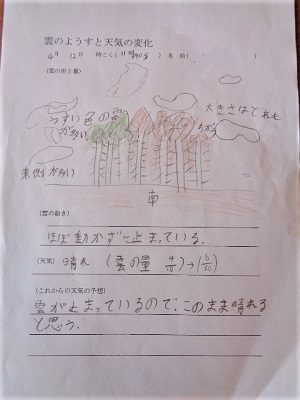 雲のようすと天気の変化
4月 12日 時こく(11時40分) 名前( )
(雲の形と量)
うすい色の雲
が多い
大きさはどれも
ちがう
東側が多い
南
(雲の動き)
ほぼ動かずに止まっている。
(天気) 晴れ (雲の量 4/10)→(5/10)
(これからの天気の予想)
雲が止まっているので、このまま晴れる
と思う。